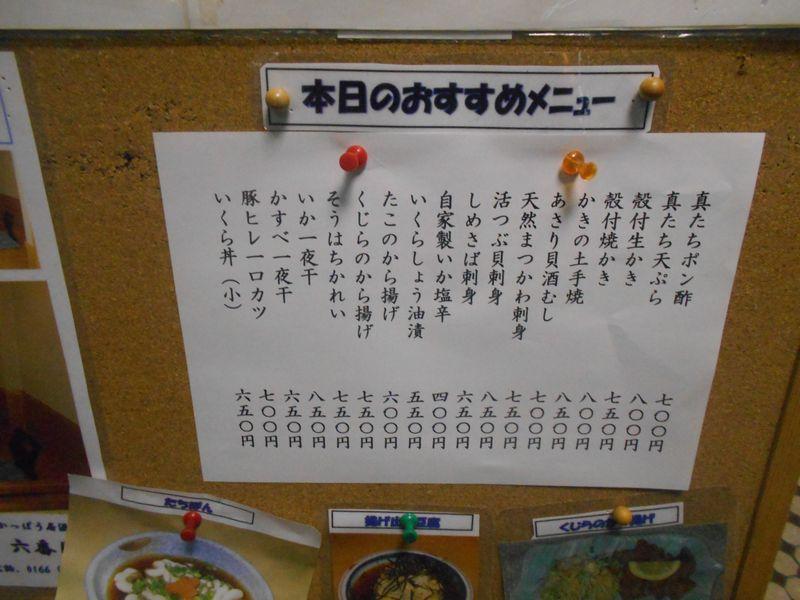 本日のおすすめメニュー
真たちポン酢 七〇〇円
真たち天ぷら 八〇〇円
殻付生かき 七五〇円
殻付焼かき 八〇〇円
かきの土手焼 八五〇円
あさり貝酒むし 七〇〇円
天然まつかわ刺身 七五〇円
活つぶ貝刺身 八五〇円
しめさば刺身 六五〇円
自家製いか塩辛 四〇〇円
いくらしょう油漬 五五〇円
たこのから揚げ 六〇〇円
くじらのから揚げ 七五〇円
そうはちかれい 七五〇円
いか一夜干 八五〇円
かすべ一夜干 六五〇円
豚ヒレ一口カツ 七〇〇円
いくら丼（小） 六五〇円
たちぽん
揚げ出 豆腐
くじらの 揚げ
かっぽう居酒
六番
0166